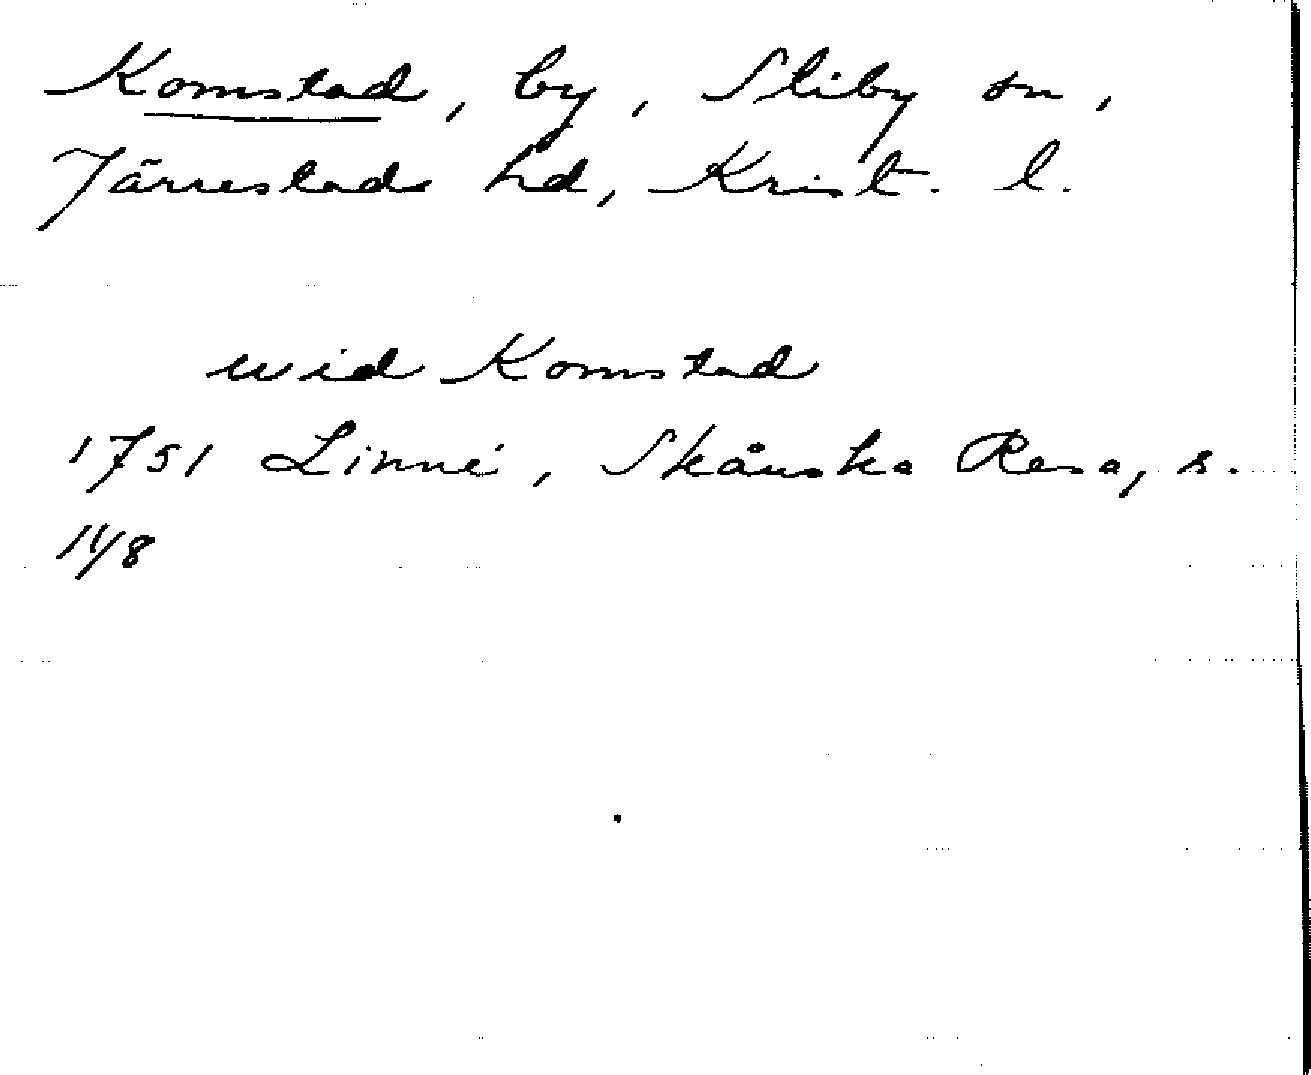 Komstad, by, Stiby sn,
Järrestads hd, Krist. l.
wid Komstad
1751 Linné, Skånska Resa, s.